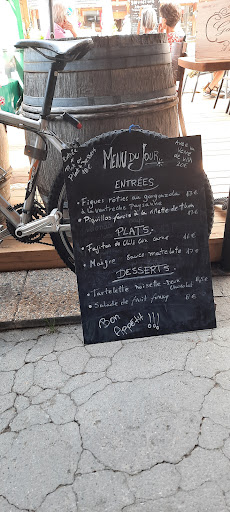 MENU DU JOUR
ENTRÉES
• Figues rôties au gorgonzola
à la ventrèche Paysanne
• Piquillos farcis à la rillette de thon
PLATS
• Fajitas de chili con carne 16 €
• Maigre sauce matelote 17 €
DESSERTS
• Tartelette noisette - deux
chocolat
• Salade de fruit funky 6 €
Bon
Appétit !!!